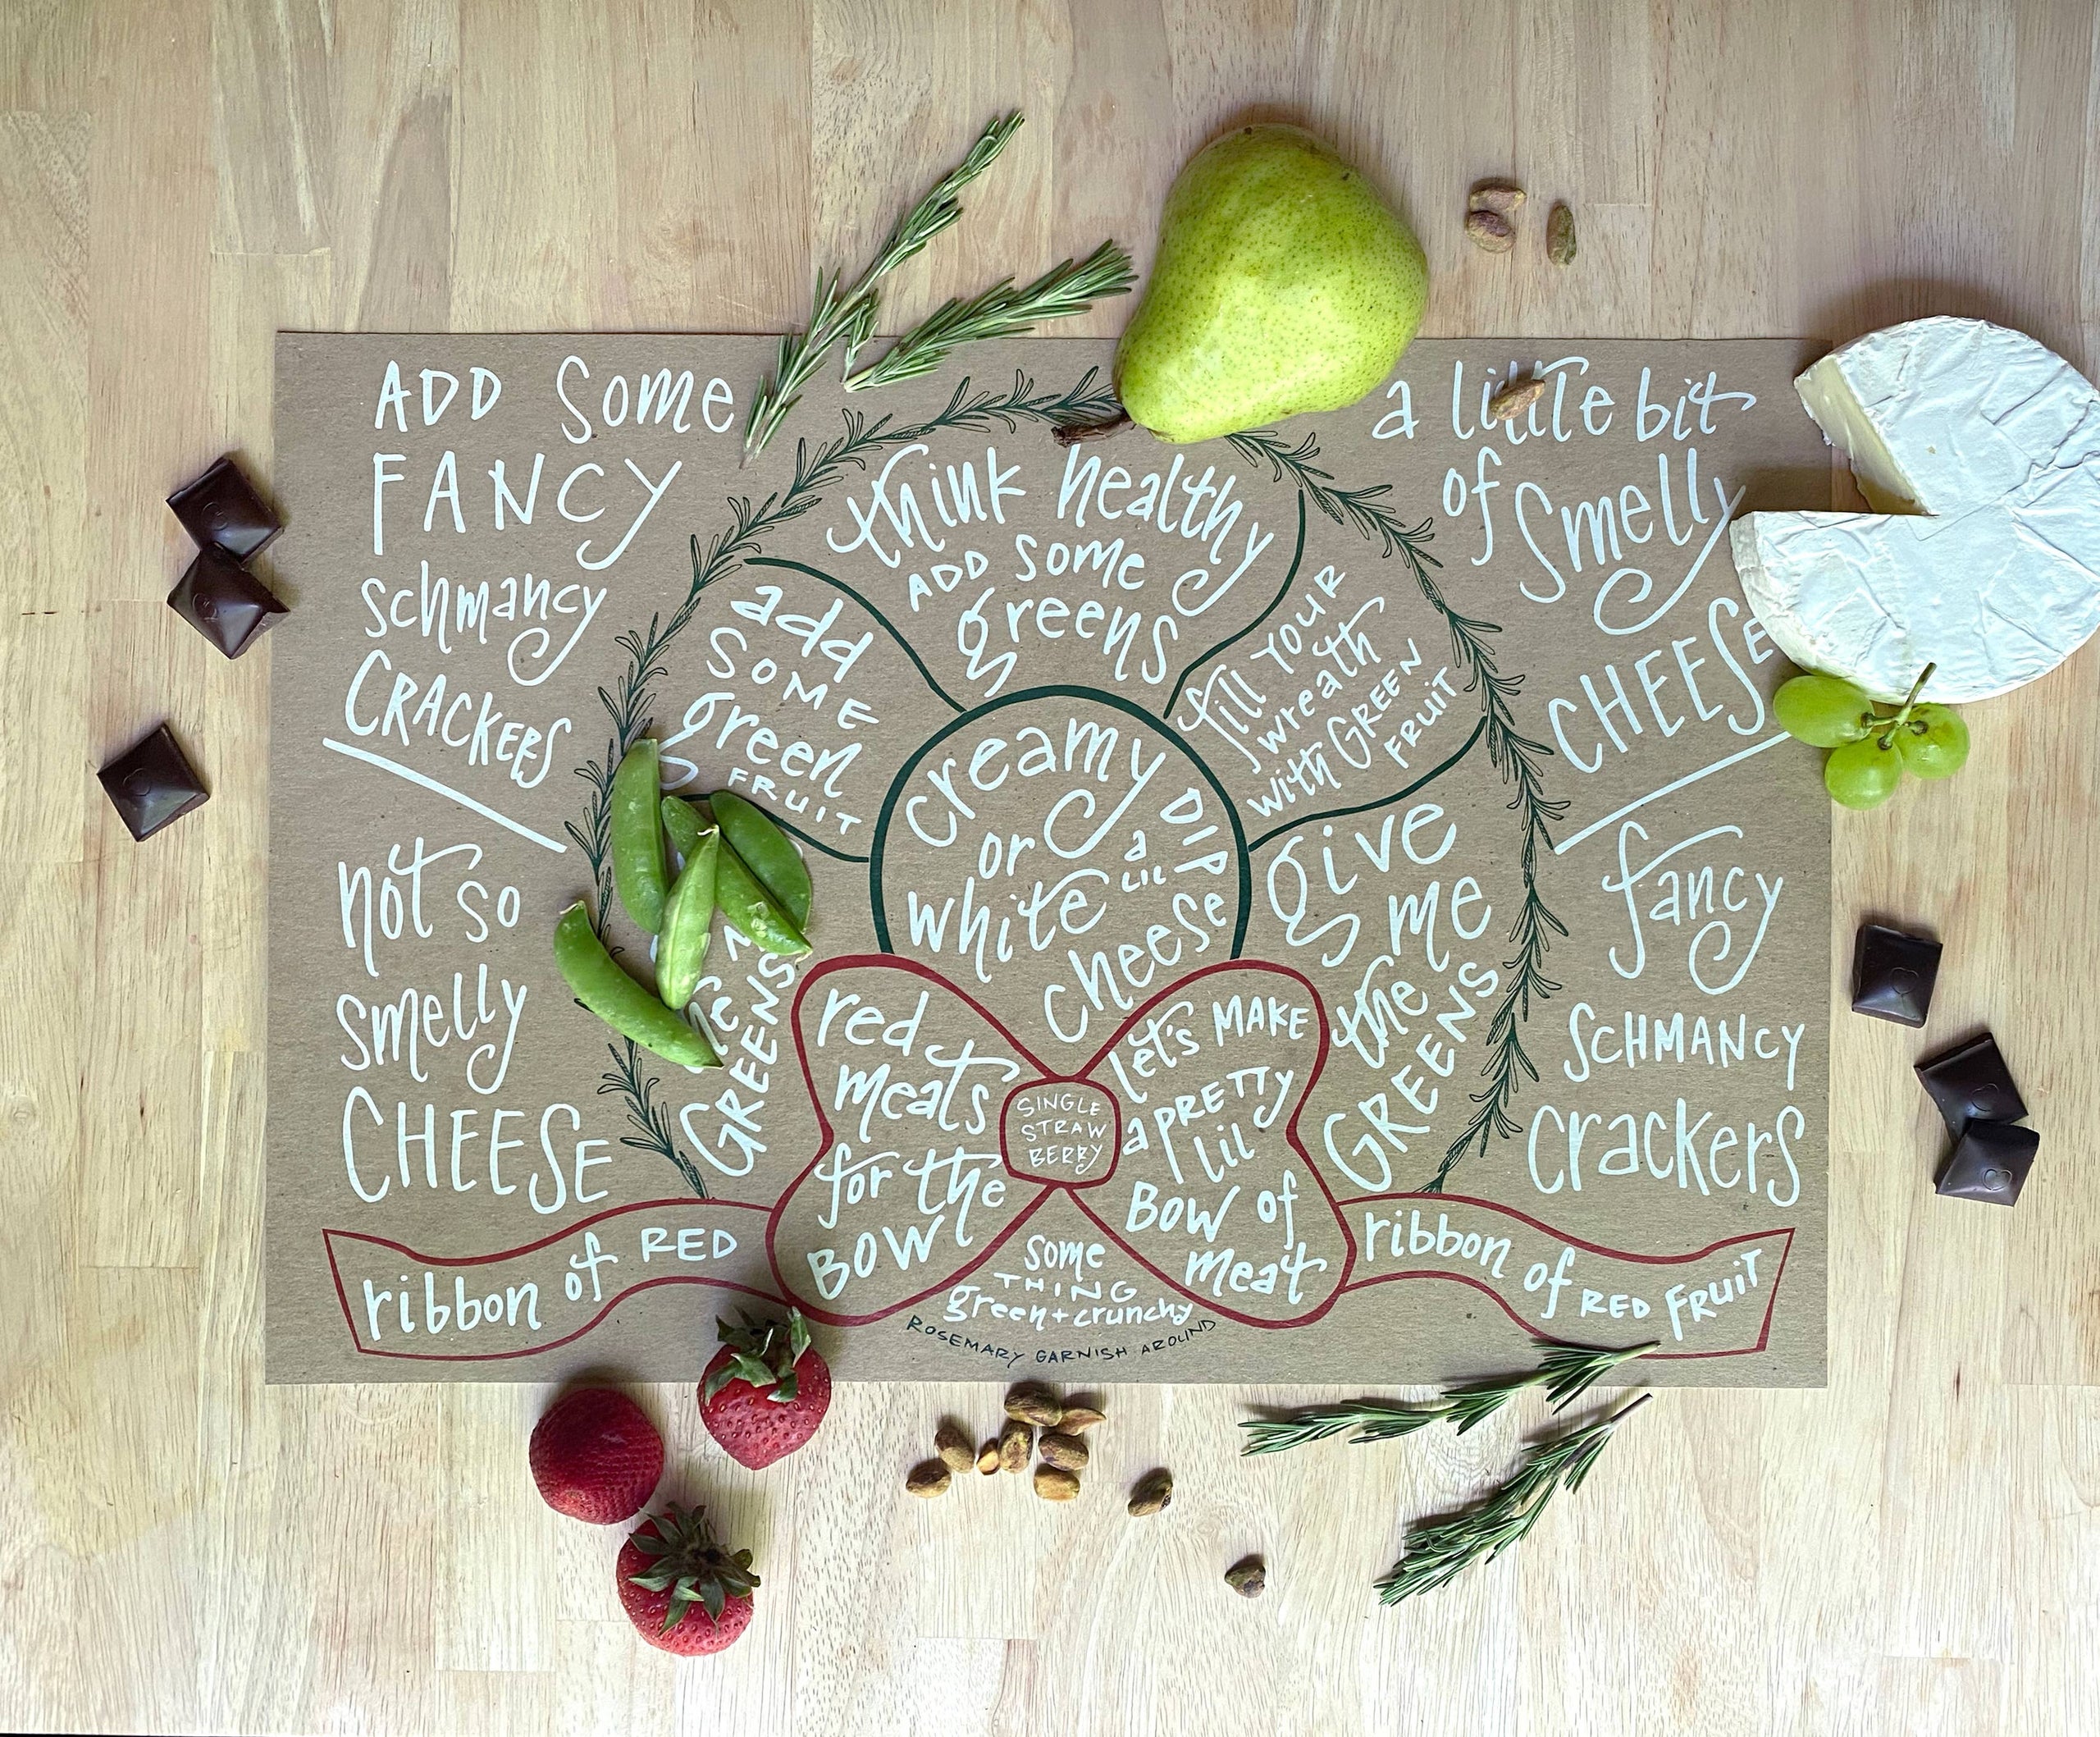 ADD Some
FANCY
schmancy
CRACKERS
not so
smelly
CHEESE
think healthy
ADD some
greens
add
SOME
green
FRUIT
fill YOUR
wreath
with GREEN
FRUIT
creamy
or
white
a
LIL
DIP
cheese
GREENS
give
me
the
GREENS
a little bit
of smelly
CHEESE
fancy
SCHMANCY
crackers
red
meats
for the
BOW
SINGLE
STRAW
BERRY
let's MAKE
a PRETTY
lil
BOW of
meat
ribbon of RED
some
THING
green + crunchy
ROSEMARY GARNISH AROUND
ribbon of RED FRUIT